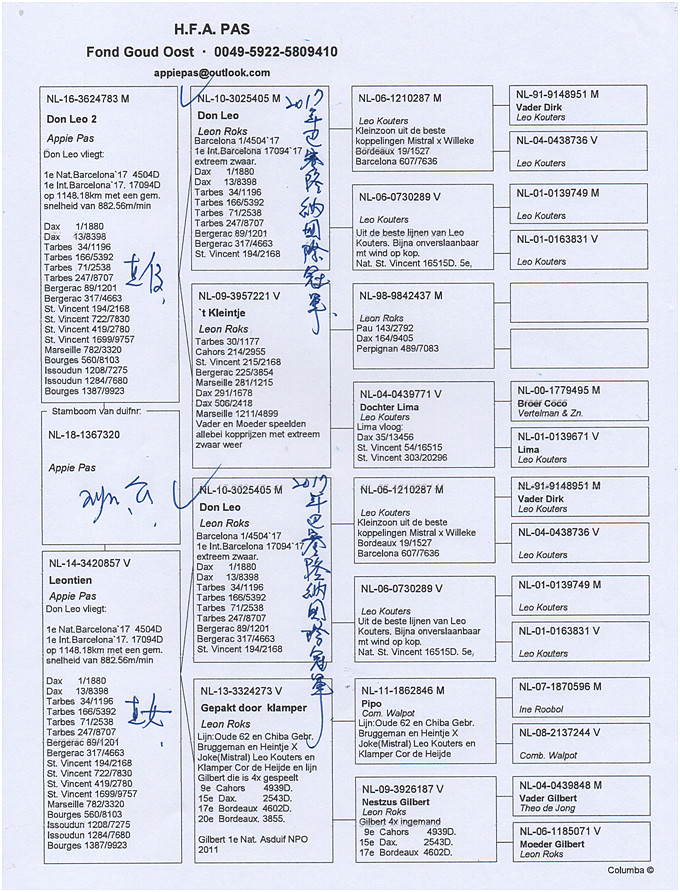 H.F.A. PAS
Fond Goud Oost · 0049-5922-5809410
appiepas@outlook.com
NL-16-3624783 M
Don Leo 2
Appie Pas
Don Leo vliegt:
1e Nat.Barcelona`17  4504D
1e Int.Barcelona`17. 17094D
op 1148.18km met een gem.
snelheid van 882.56m/min
Dax 1/1880
Dax 13/8398
Tarbes 34/1196
Tarbes 166/5392
Tarbes 71/2538
Tarbes 247/8707
Bergerac 89/1201
Bergerac 317/4663
St. Vincent 194/2168
St. Vincent 722/7830
St. Vincent 419/2780
St. Vincent 1699/9757
Marseille 782/3320
Bourges 560/8103
Issoudun 1208/7275
Issoudun 1284/7680
Bourges 1387/9923
Stamboom van duifnr:
NL-18-1367320
Appie Pas
NL-14-3420857 V
Leontien
Appie Pas
Don Leo vliegt:
1e Nat.Barcelona`17  4504D
1e Int.Barcelona`17. 17094D
op 1148.18km met een gem.
snelheid van 882.56m/min
Dax 1/1880
Dax 13/8398
Tarbes 34/1196
Tarbes 166/5392
Tarbes 71/2538
Tarbes 247/8707
Bergerac 89/1201
Bergerac 317/4663
St. Vincent 194/2168
St. Vincent 722/7830
St. Vincent 419/2780
St. Vincent 1699/9757
Marseille 782/3320
Bourges 560/8103
Issoudun 1208/7275
Issoudun 1284/7680
Bourges 1387/9923
直女
NL-10-3025405 M
Don Leo
Leon Roks
Barcelona 1/4504`17
1e Int.Barcelona 17094`17
extreem zwaar.
Dax 1/1880
Dax 13/8398
Tarbes 34/1196
Tarbes 166/5392
Tarbes 71/2538
Tarbes 247/8707
Bergerac 89/1201
Bergerac 317/4663
St. Vincent 194/2168
2017年巴塞隆纳国际冠軍
NL-09-3957221 V
`t Kleintje
Leon Roks
Tarbes 30/1177
Cahors 214/2955
St. Vincent 215/2168
Bergerac 225/3854
Marseille 281/1215
Dax 291/1678
Dax 506/2418
Marseille 1211/4899
Vader en Moeder speelden
allebei kopprijzen met extreem
zwaar weer
NL-10-3025405 M
Don Leo
Leon Roks
Barcelona 1/4504`17
1e Int.Barcelona 17094`17
extreem zwaar.
Dax 1/1880
Dax 13/8398
Tarbes 34/1196
Tarbes 166/5392
Tarbes 71/2538
Tarbes 247/8707
Bergerac 89/1201
Bergerac 317/4663
St. Vincent 194/2168
2017年巴塞隆纳国际冠軍
NL-13-3324273 V
Gepakt door klamper
Leon Roks
Lijn:Oude 62 en Chiba Gebr.
Bruggeman en Heintje X
Joke(Mistral) Leo Kouters en
Klamper Cor de Heijde en lijn
Gilbert die is 4x gespeelt
9e Cahors 4939D.
15e Dax. 2543D.
17e Bordeaux 4602D.
20e Bordeaux. 3855.
Gilbert 1e Nat. Asduif NPO
2011
NL-06-1210287 M
Leo Kouters
Kleinzoon uit de beste
koppelingen Mistral x Willeke
Bordeaux 19/1527
Barcelona 607/7636
NL-06-0730289 V
Leo Kouters
Uit de beste lijnen van Leo
Kouters. Bijna onverslaanbaar
mt wind op kop.
Nat. St. Vincent 16515D. 5e,
NL-98-9842437 M
Leon Roks
Pau 143/2792
Dax 164/9405
Perpignan 489/7083
NL-04-0439771 V
Dochter Lima
Leo Kouters
Lima vloog:
Dax 35/13456
St. Vincent 54/16515
St. Vincent 303/20296
NL-06-1210287 M
Leo Kouters
Kleinzoon uit de beste
koppelingen Mistral x Willeke
Bordeaux 19/1527
Barcelona 607/7636
NL-06-0730289 V
Leo Kouters
Uit de beste lijnen van Leo
Kouters. Bijna onverslaanbaar
mt wind op kop.
Nat. St. Vincent 16515D. 5e,
NL-11-1862846 M
Pipo
Com. Walpot
Lijn:Oude 62 en Chiba Gebr.
Bruggeman en Heintje X
Joke(Mistral) Leo Kouters en
Klamper Cor de Heijde
NL-09-3926187 V
Nestzus Gilbert
Leon Roks
Gilbert 4x ingemand
9e Cahors 4939D.
15e Dax. 2543D.
17e Bordeaux 4602D.
NL-91-9148951 M
Vader Dirk
Leo Kouters
NL-04-0438736 V
Leo Kouters
NL-01-0139749 M
Leo Kouters
NL-01-0163831 V
Leo Kouters
NL-00-1779495 M
Broer Coco
Vertelman & Zn.
NL-01-0139671 V
Lima
Leo Kouters
NL-91-9148951 M
Vader Dirk
Leo Kouters
NL-04-0438736 V
Leo Kouters
NL-01-0139749 M
Leo Kouters
NL-01-0163831 V
Leo Kouters
NL-07-1870596 M
Ine Roobol
NL-08-2137244 V
Comb. Walpot
NL-04-0439848 M
Vader Gilbert
Theo de Jong
NL-06-1185071 V
Moeder Gilbert
Leon Roks
Columba ©